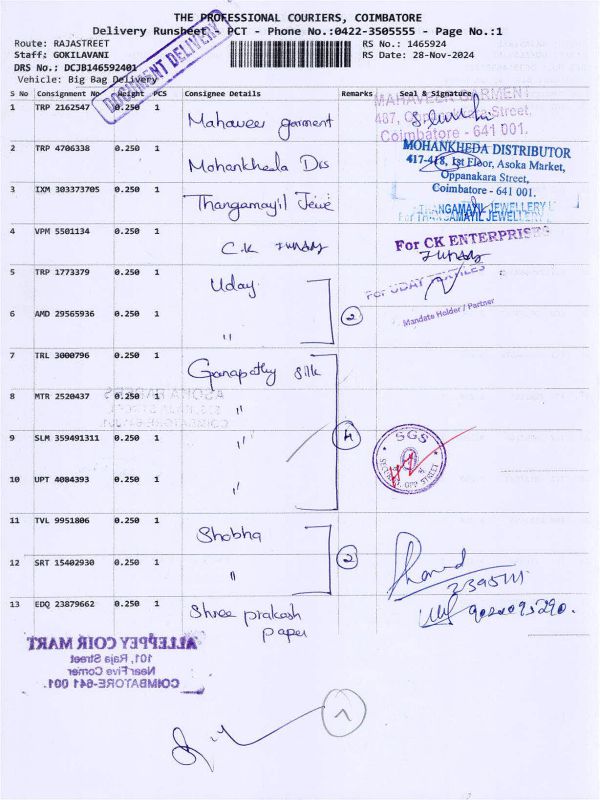 THE PROFESSIONAL COURIERS, COIMBATORE
Delivery Runsheet - PCT - Phone No.:0422-3505555 - Page No.:1
Route: RAJASTREET
RS No.: 1465924
Staff: GOKILAVANI
RS Date: 28-Nov-2024
DRS No.: DCJB146592401
Vehicle: Big Bag Delivery
DOCUMENT DELIVERY
S No Consignment No Weight PCS Consignee Details Remarks Seal & Signature
1 TRP 2162547 0.250 1 Mahaveer garment
MAHAVEER GARMENT
487, Street,
Coimbatore - 641 001.
2 TRP 4706338 0.250 1 Mohankheda Dis
MOHANKHEDA DISTRIBUTOR
417-418, 1st Floor, Asoka Market,
Oppanakara Street,
Coimbatore - 641 001.
3 IXM 303373705 0.250 1 Thangamayil Jewe
THANGAMAYIL JEWELLERY L
For THANGAMAYIL JEWELLERY L
4 VPM 5501134 0.250 1 C.K
For CK ENTERPRISES
5 TRP 1773379 0.250 1 Uday
For UDAY TEXTILES
Mandate Holder / Partner
6 AMD 29565936 0.250 1 " 2
7 TRL 3000796 0.250 1 Ganapathy Silk
8 MTR 2520437 0.250 1 "
9 SLM 359491311 0.250 1 " 4
SGS
10 UPT 4084393 0.250 1 "
11 TVL 9951806 0.250 1 Shobha
12 SRT 15402930 0.250 1 " 2
13 EDQ 23879662 0.250 1 Shree prakash
paper
ALLEPPEY COIR MART
101, Raja Street
Near Five Corner
COIMBATORE-641 001.